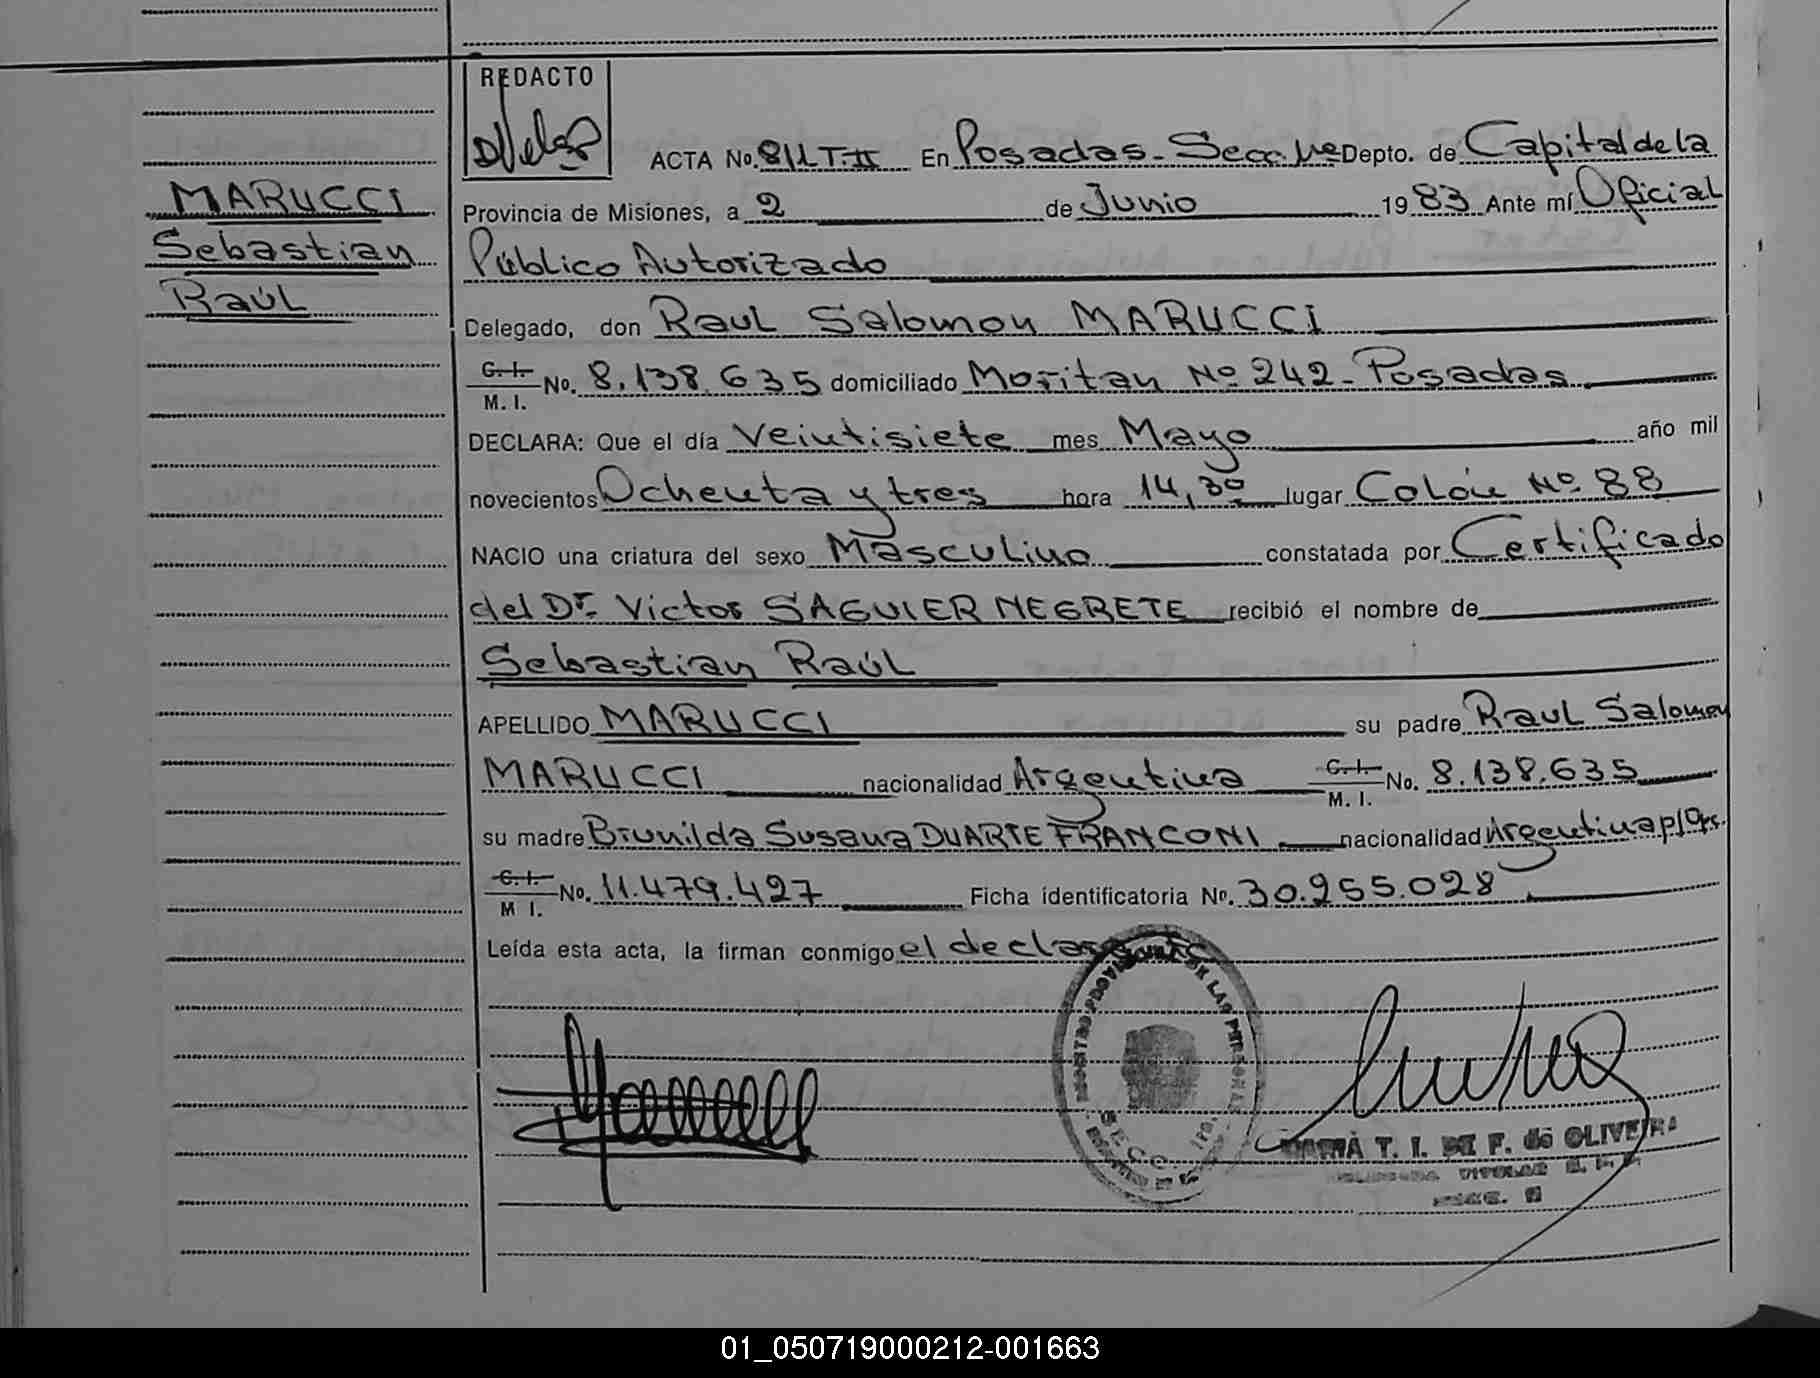 REDACTO
ACTA No. 811 T-II En Posadas - Secc. 1ra Depto. de Capital de la
MARUCCI
Provincia de Misiones, a 2 de Junio 1983 Ante mí Oficial
Sebastian
Público Autorizado
Raúl
Delegado, don Raul Salomon MARUCCI
C. I. M. I. No. 8.138.635 domiciliado Moritan No 242 - Posadas
DECLARA: Que el día Veintisiete mes Mayo año mil
novecientos Ochenta y tres hora 14,30 lugar Colón No. 88
NACIO una criatura del sexo Masculino constatada por Certificado
del Dr. Victor SAGUIER NEGRETE recibió el nombre de
Sebastian Raúl
APELLIDO MARUCCI su padre Raul Salomon
MARUCCI nacionalidad Argentina C. I. M. I. No. 8.138.635
su madre Brunilda Susana DUARTE FRANCONI nacionalidad Argentina p/Ops.
C. I. M I. No. 11.479.427 Ficha identificatoria No. 30.255.028
Leída esta acta, la firman conmigo el declarante
REGISTRO PROVINCIAL DE LAS PERSONAS
MARIA T. I. DE F. de OLIVEIRA
01_050719000212-001663